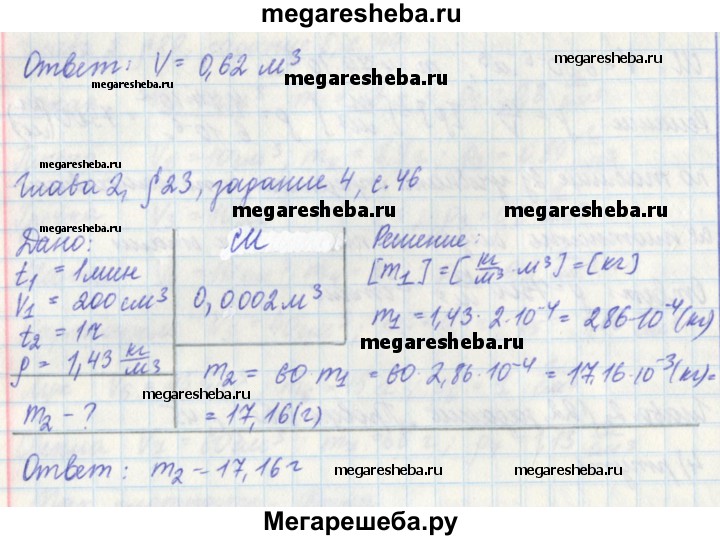 megaresheba.ru
Ответ: V = 0,62 м³
megaresheba.ru
megaresheba.ru
megaresheba.ru
Глава 2, §23, задание 4, с. 46
megaresheba.ru
megaresheba.ru
Дано:
t₁ = 1 мин
V₁ = 200 см³
t₂ = 1 ч
ρ = 1,43 кг/м³
m₂ - ?
СИ
0,0002 м³
Решение:
[m₁] = [кг/м³ · м³] = [кг]
m₁ = 1,43 · 2 · 10⁻⁴ = 2,86 · 10⁻⁴ (кг)
megaresheba.ru
m₂ = 60 m₁ = 60 · 2,86 · 10⁻⁴ = 17,16 · 10⁻³ (кг) =
megaresheba.ru
= 17,16 (г)
Ответ: m₂ - 17,16 г
megaresheba.ru
megaresheba.ru
Мегарешеба.ру